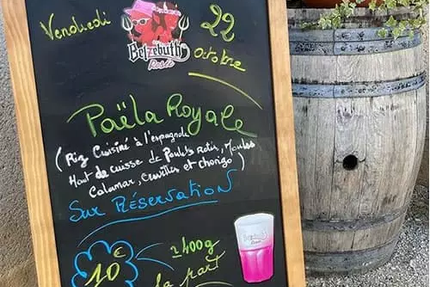 Vendredi 22
Octobre
Belzebuth
Rosé
Paëla Royale
( Riz Cuisiné à l'espagnol
Haut de cuisse de Poulet rotis, Moules
Calamar, Crevettes et chorizo )
Sur Réservation
10€
≃400g
la part